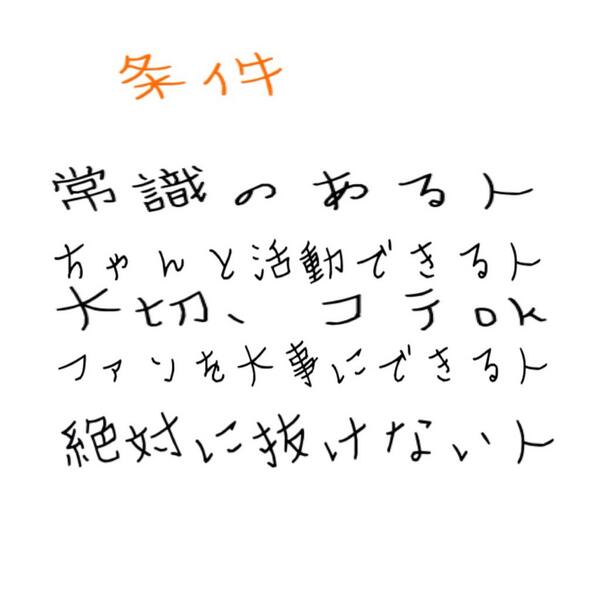 条件
常識のある人
ちゃんと活動できる人
大切、コテok
ファンを大事にできる人
絶対に抜けない人